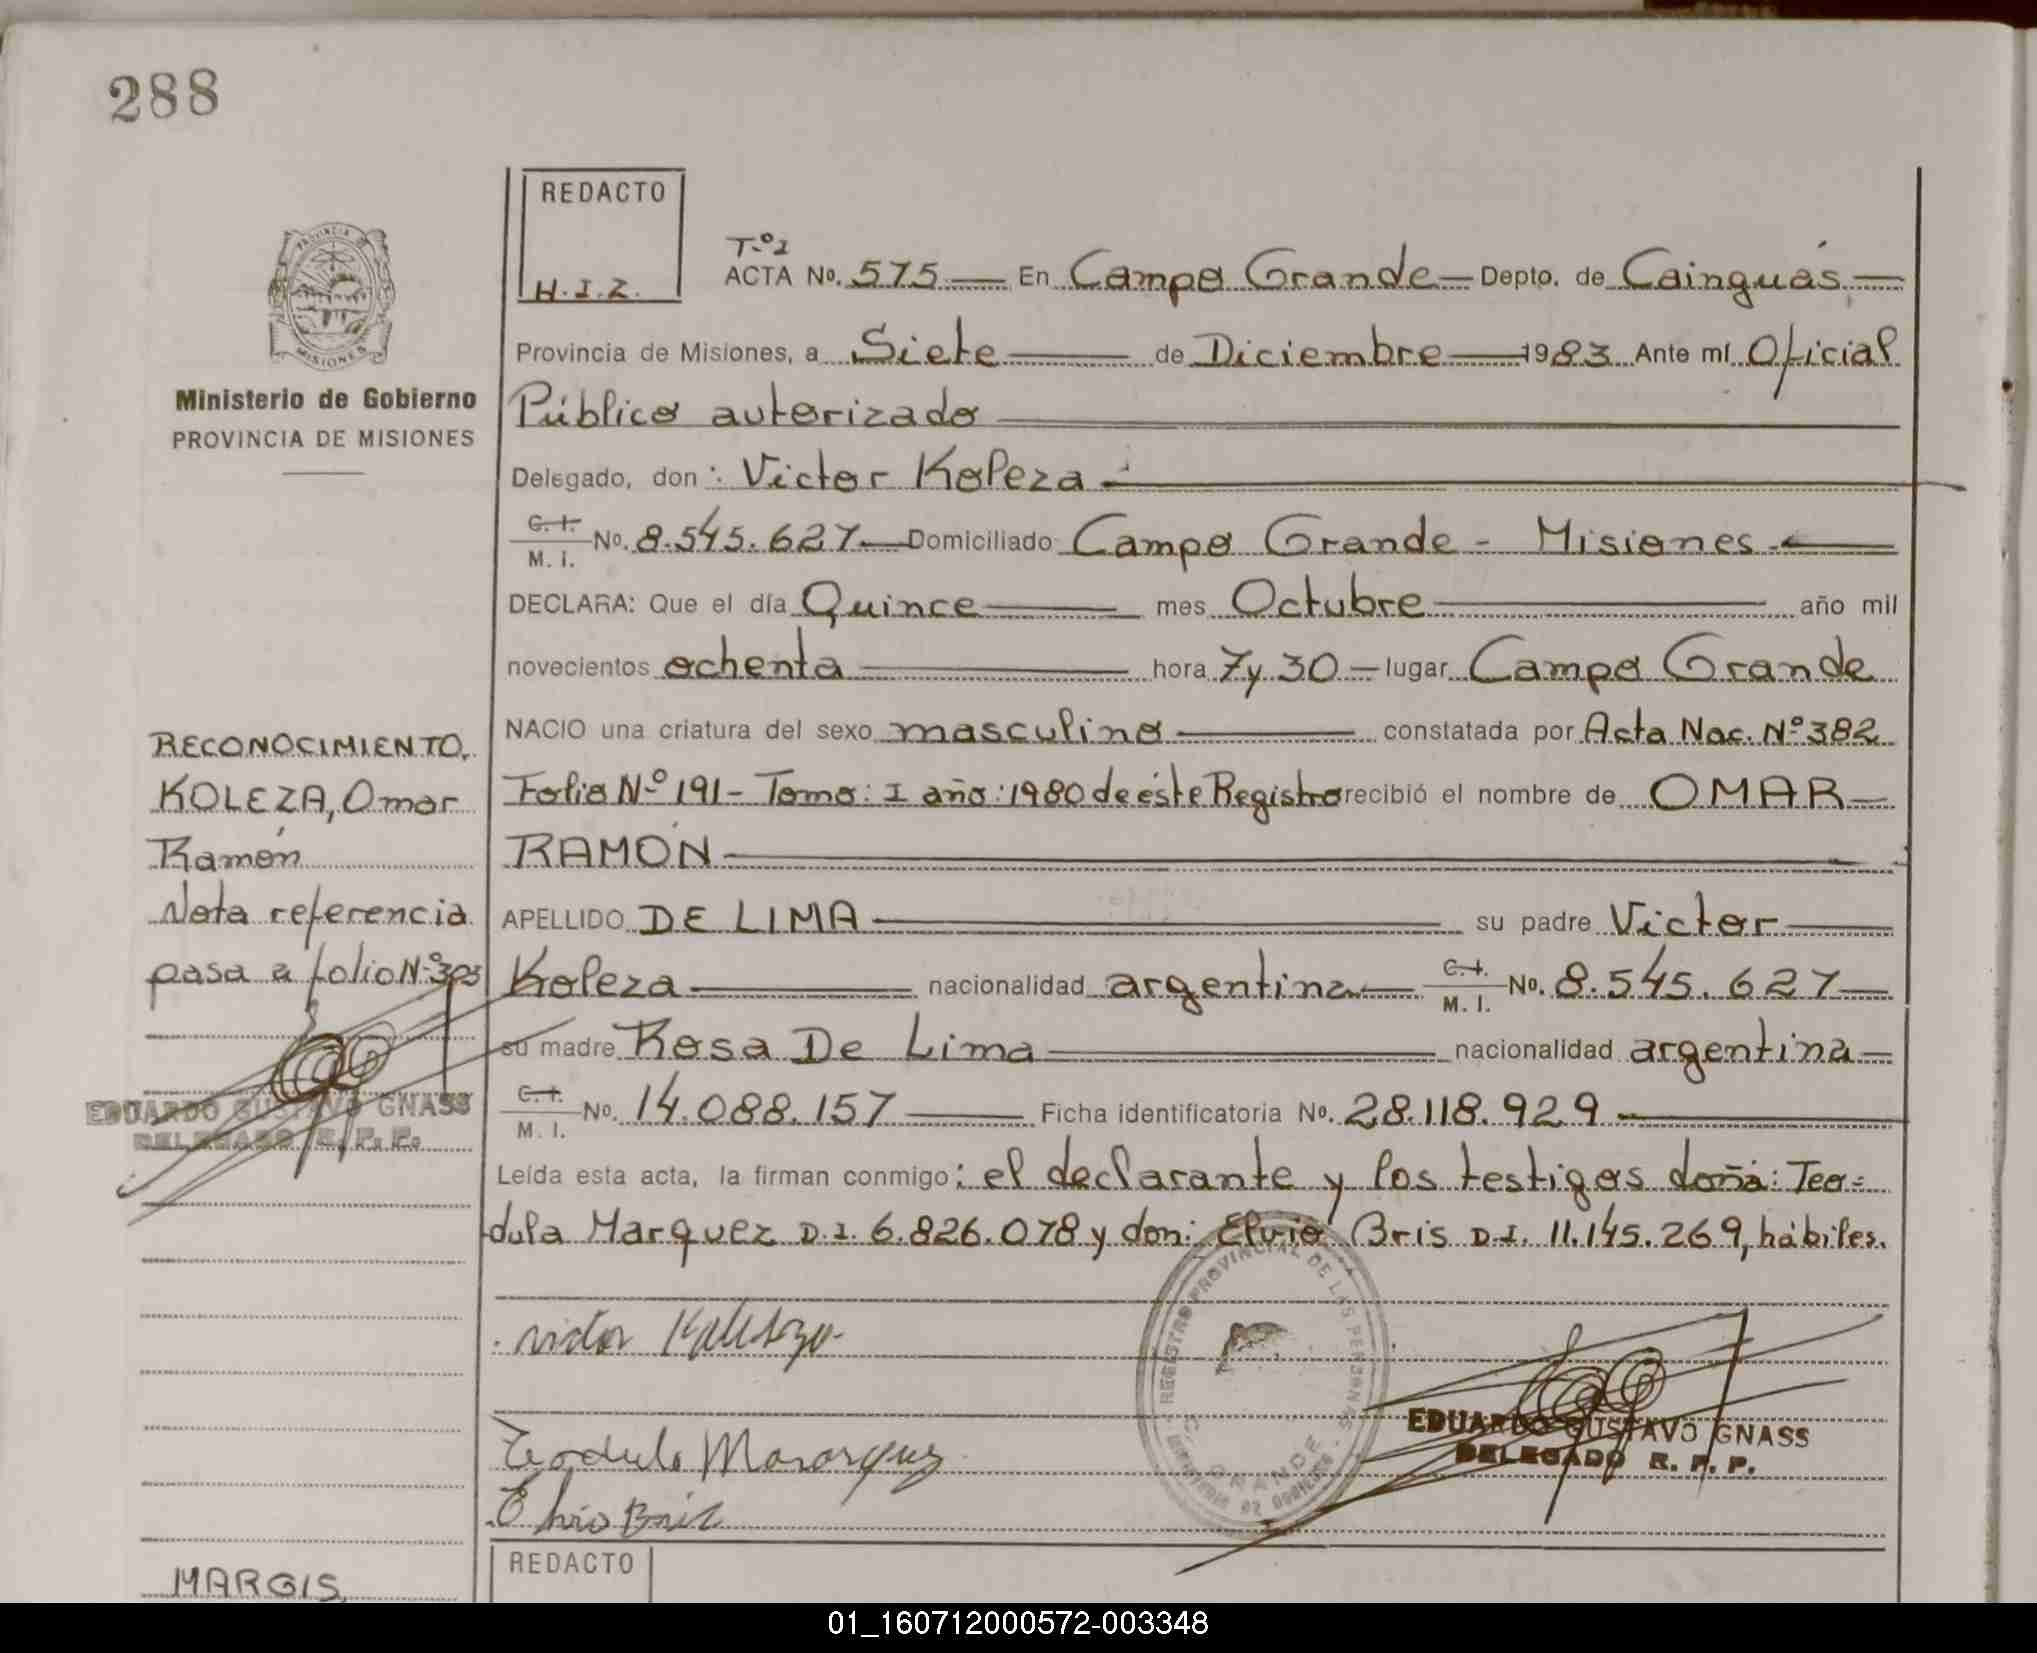 288
REDACTO
H.I.Z.
Tº I
ACTA Nº. 575 En Campo Grande Depto. de Cainguás
Provincia de Misiones, a Siete de Diciembre 1983 Ante mí Oficial
Público autorizado
Delegado, don: Victor Koleza
C. I.
M. I. Nº. 8.545.627 Domiciliado Campo Grande - Misiones
DECLARA: Que el día Quince mes Octubre año mil
novecientos ochenta hora 7 y 30 lugar Campo Grande
NACIO una criatura del sexo masculino constatada por Acta Nac. Nº 382
Folio Nº 191 - Tomo: I año: 1980 de éste Registro recibió el nombre de OMAR
RAMÓN
APELLIDO DE LIMA su padre Victor
Koleza nacionalidad argentina C. I. M. I. Nº. 8.545.627
su madre Rosa De Lima nacionalidad argentina
C. I.
M. I. Nº. 14.088.157 Ficha identificatoria Nº. 28.118.929
Leída esta acta, la firman conmigo: el declarante y los testigos doña: Teo=
dula Marquez D.I. 6.826.078 y don: Elvio Bris D.I. 11.145.269, hábiles.
EDUARDO GUSTAVO GNASS
DELEGADO R. P. P.
REGISTRO PROVINCIAL DE LAS PERSONAS
GRANDE
REDACTO
PROVINCIA DE
MISIONES
Ministerio de Gobierno
PROVINCIA DE MISIONES
RECONOCIMIENTO.
KOLEZA, Omar
Ramón
Nota referencia
pasa a folio Nº 303
EDUARDO GUSTAVO GNASS
DELEGADO R. P. P.
MARGIS,
01_160712000572-003348